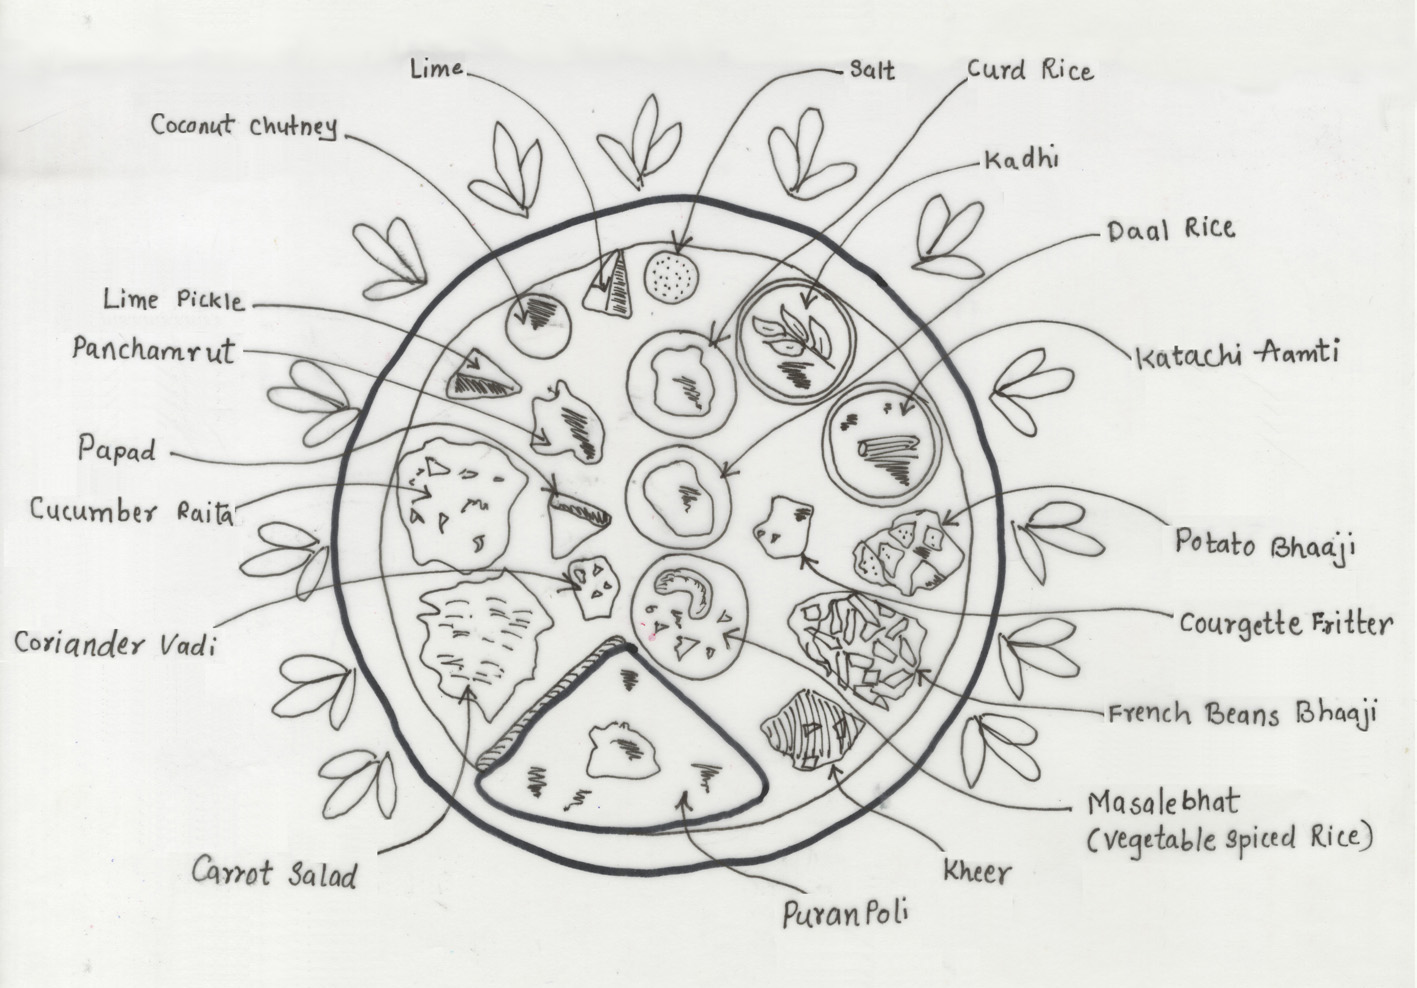 Lime
Salt
Curd Rice
Coconut Chutney
Kadhi
Daal Rice
Lime Pickle
Panchamrut
Katachi Aamti
Papad
Cucumber Raita
Potato Bhaaji
Courgette Fritter
Coriander Vadi
French Beans Bhaaji
Masalebhat
(Vegetable Spiced Rice)
Carrot Salad
Kheer
Puran Poli